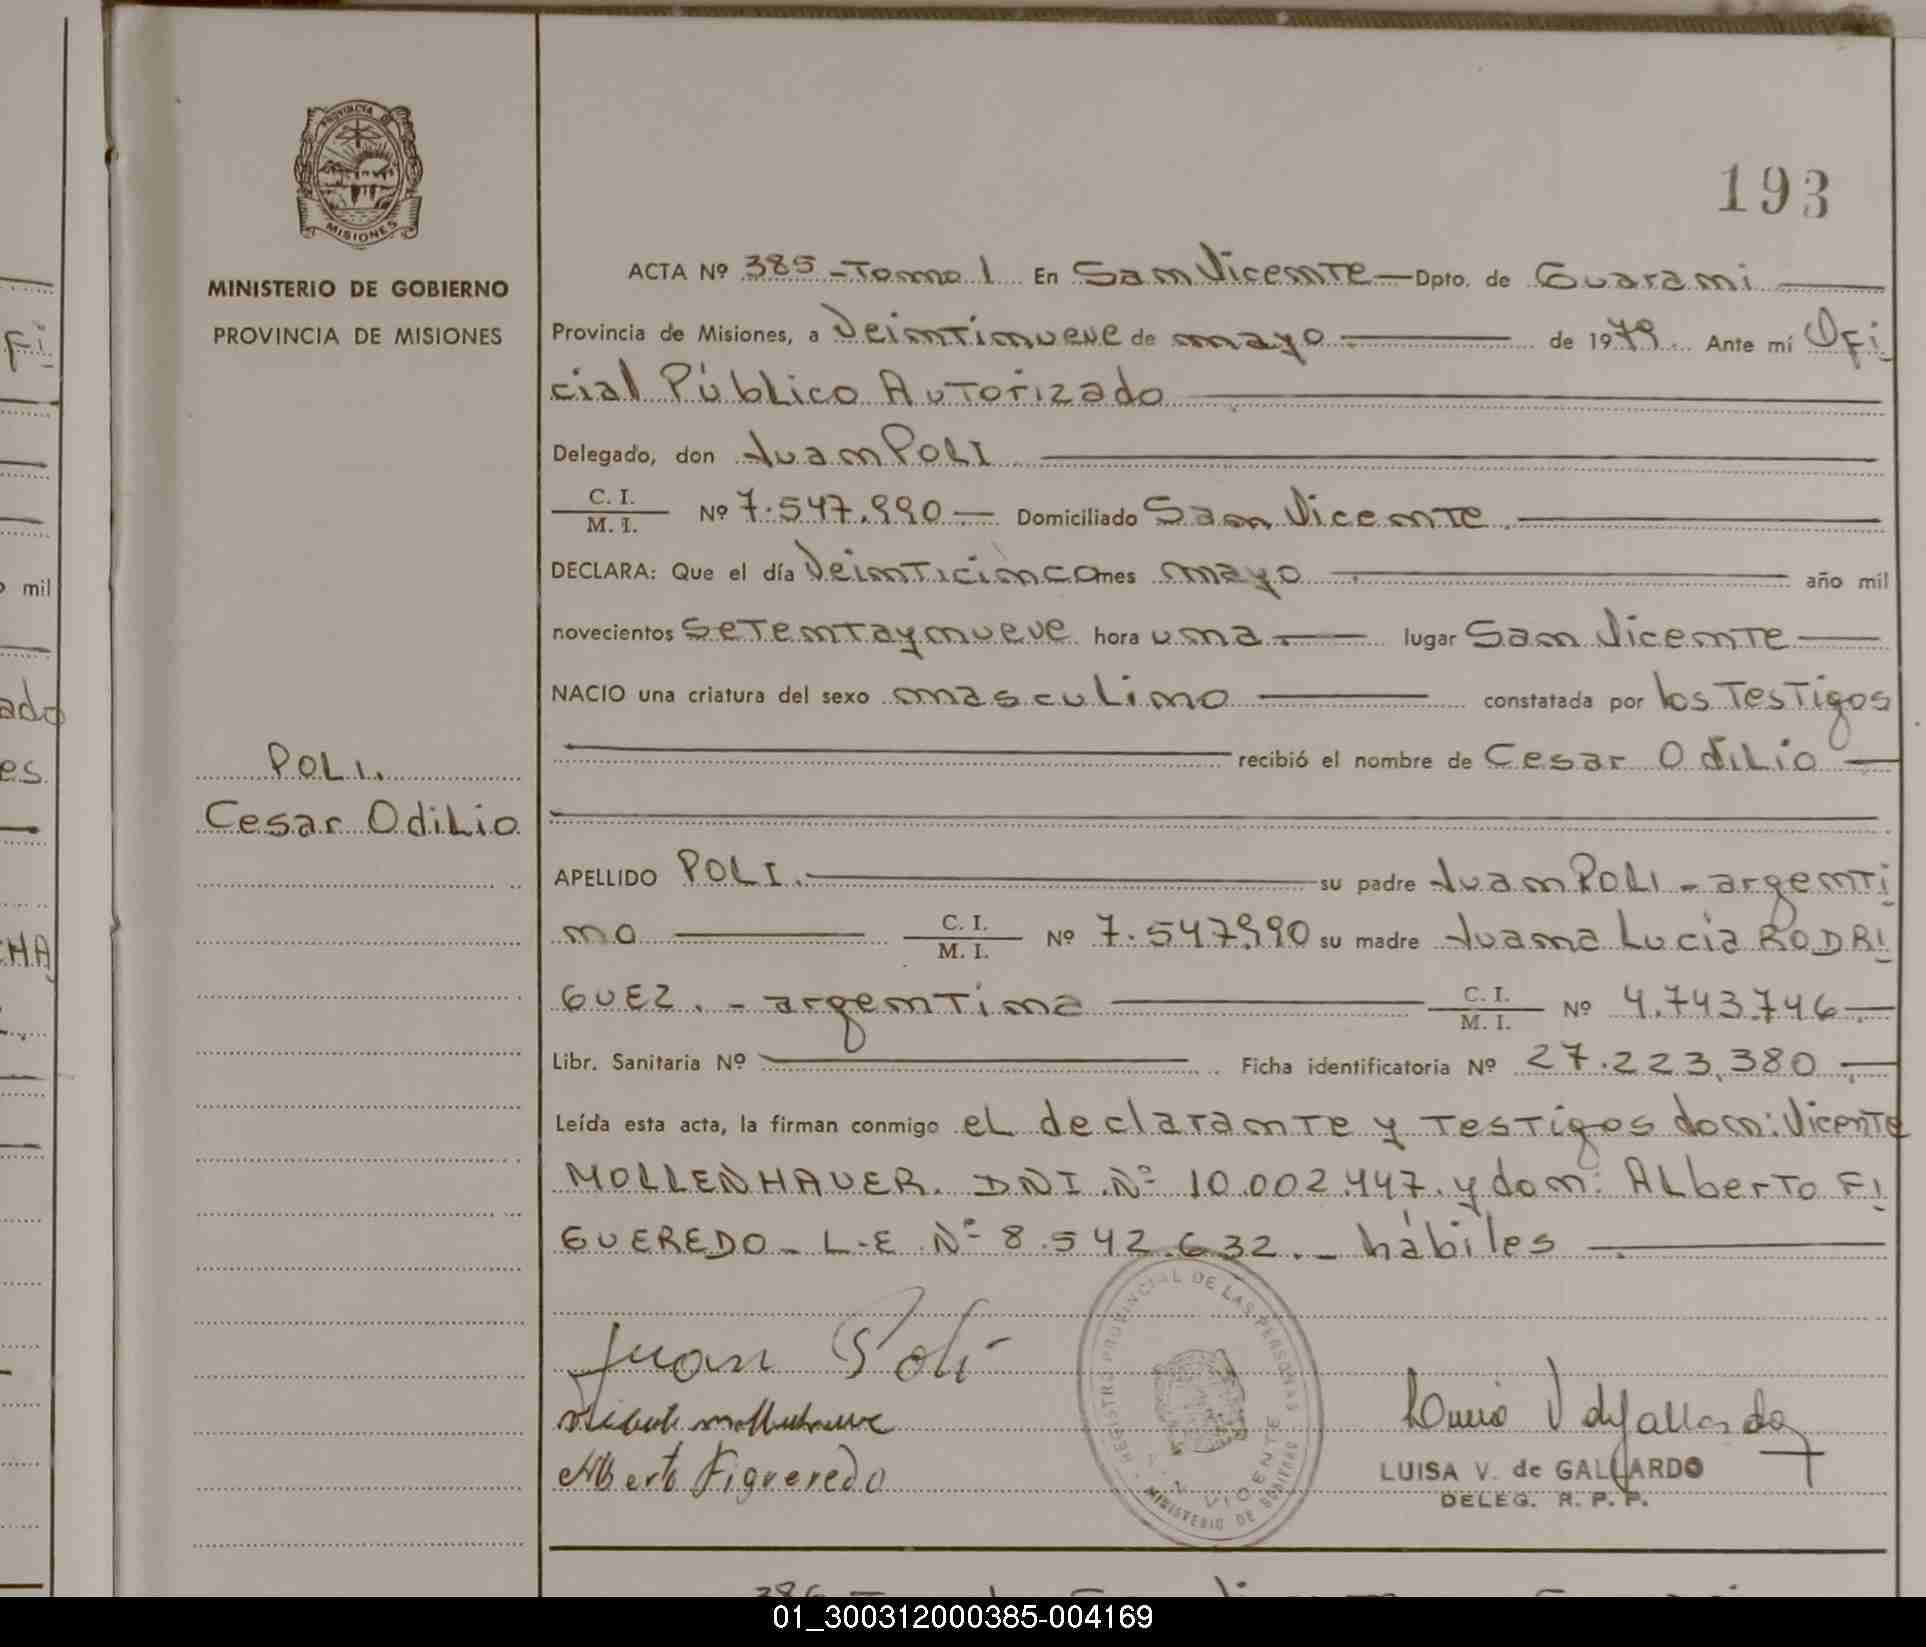 PROVINCIA DE
MISIONES
MINISTERIO DE GOBIERNO
PROVINCIA DE MISIONES
POLI.
Cesar Odilio
193
ACTA Nº 385 - Tomo 1 En San Vicente — Dpto. de Guarani
Provincia de Misiones, a Veintinueve de mayo de 1979. Ante mí Ofi
cial Público Autorizado
Delegado, don Juan POLI
C. I.
M. I. Nº 7.547.990 — Domiciliado San Vicente.
DECLARA: Que el día Veinticinco mes mayo año mil
novecientos setenta y nueve hora una lugar San Vicente
NACIO una criatura del sexo masculino constatada por los Testigos
recibió el nombre de Cesar Odilio
APELLIDO POLI. su padre Juan POLI - argenti
no C. I.
M. I. Nº 7.547.990 su madre Juana Lucia RODRI
GUEZ. - argentina C. I.
M. I. Nº 4.743.746
Libr. Sanitaria Nº Ficha identificatoria Nº 27.223.380
Leída esta acta, la firman conmigo el declarante y testigos don: Vicente
MOLLENHAUER. DNI. Nº 10.002.447. y don: Alberto FI
GUEREDO - L.E. Nº 8.542.632. - hábiles
Juan Poli
Alberto Figueredo
REGISTRO PROVINCIAL DE LAS PERSONAS
VICENTE
MINISTERIO DE GOBIERNO
LUISA V. de GALLARDO
DELEG. R. P. P.
fi
mil
ado
es.
CHA
386
01_300312000385-004169